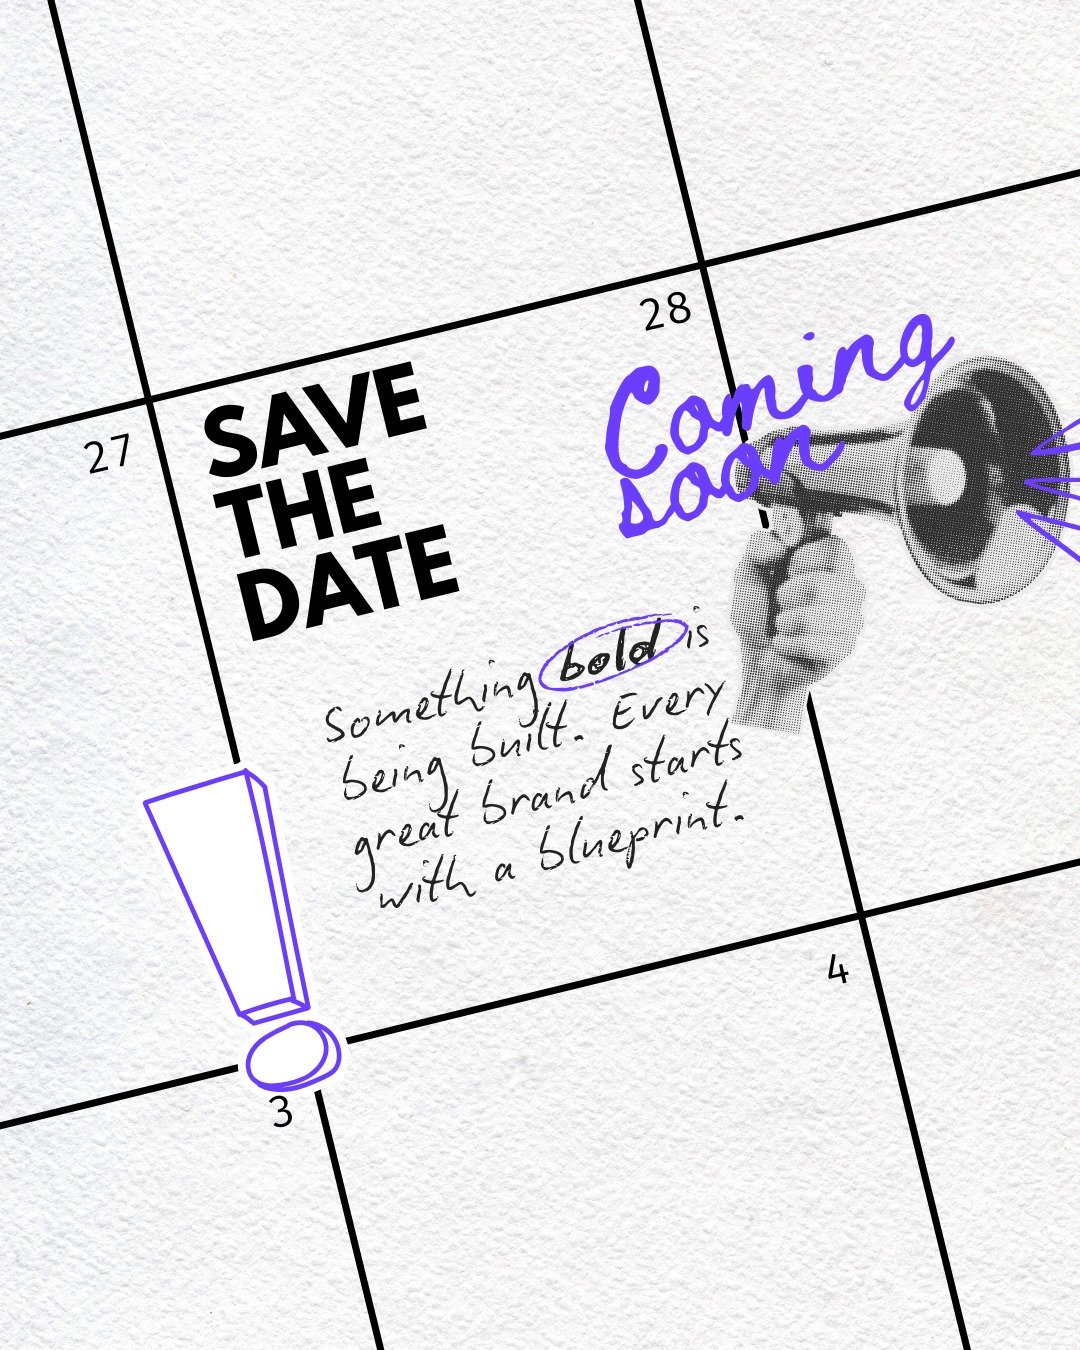 28
27
SAVE
THE
DATE
Coming
soon
Something bold is
being built. Every
great brand starts
with a blueprint.
4
3